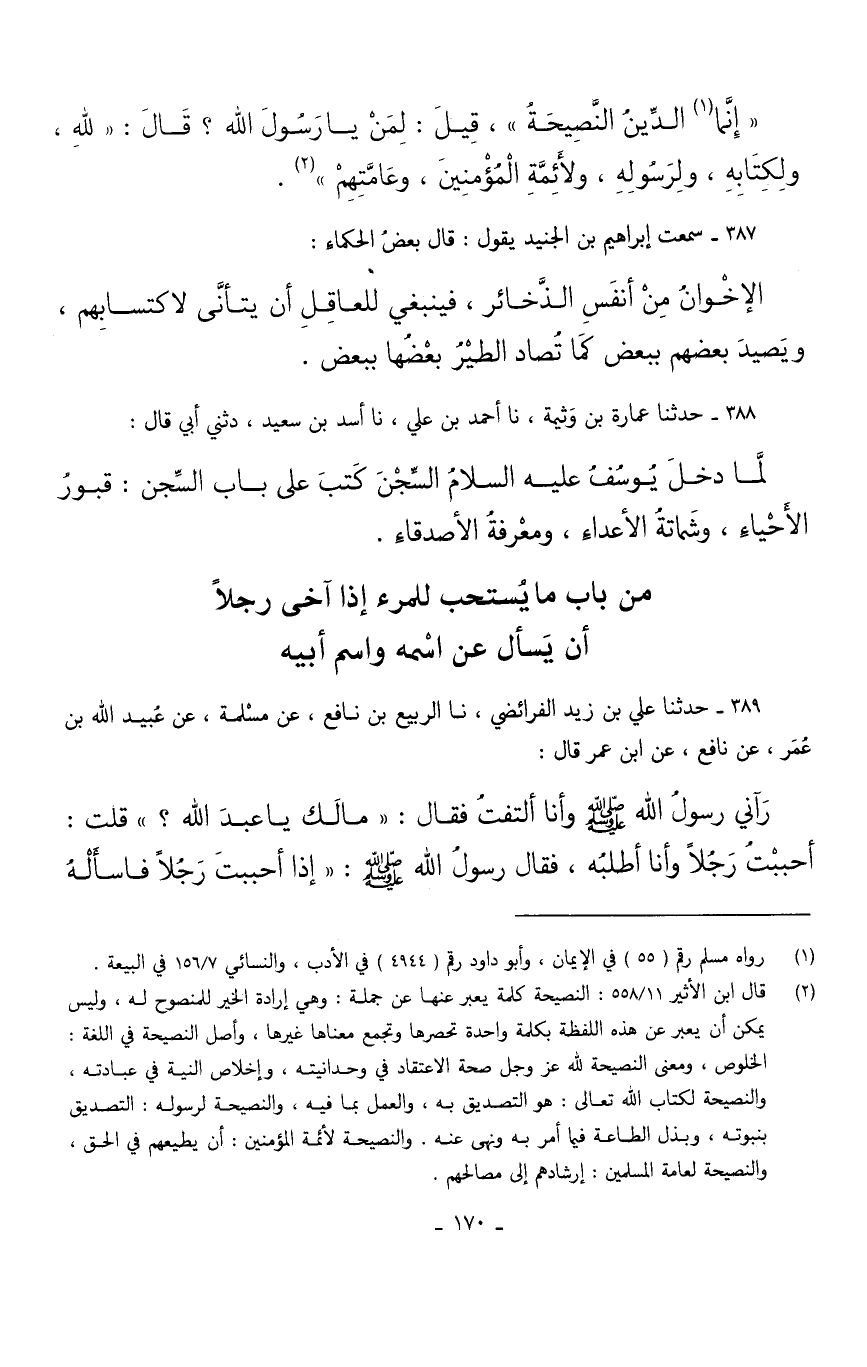 « إِنَّما(١) الـدِّينُ النَّصِيحَـةُ » ، قِيـلَ : لِمَنْ يـارَسُـولَ الله ؟ قَـالَ : « للهِ ،
ولِكِتَابِهِ ، ولِرَسُولِهِ ، ولأَئِمَّةِ الْمُؤْمِنينَ ، وعَامَّتِهِمْ »(٢) .
٣٨٧ ـ سمعت إبراهيم بن الجنيد يقول : قال بعضُ الحكماء :
الإخْوانُ مِنْ أنفَسِ الـذَّخـائر ، فينبغي للعـاقِـلِ أن يتـأنَّى لاكتسـابِهم ،
ويَصيدَ بعضهم ببعض كَمَا تُصاد الطيْرُ بعْضُها ببعض .
٣٨٨ ـ حدثنا عمارة بن وَثيمة ، نا أحمد بن علي ، نا أسد بن سعيد ، دثني أبي قال :
لَمَّـا دخـلَ يُـوسُفُ عليـه السـلامُ السِّجْنَ كَتبَ على بـاب السِّجن : قبـورُ
الأَحْياءِ ، وشَماتةُ الأعداءِ ، ومعْرفةُ الأصدقاءِ .
من باب ما يُستحب للمرء إذا آخى رجلاً
أن يَسأل عن اسْمه واسم أبيه
٣٨٩ ـ حدثنا علي بن زيد الفرائضي ، نـا الربيع بن نـافع ، عن مسْلمـة ، عن عُبيـد الله بن
عُمَر ، عن نافع ، عن ابن عمر قال :
رَآني رسولُ الله ﷺ وأنا ألتفتُ فقـال : « مـالَـك يـاعبـدَ الله ؟ » قلت :
أحببْتُ رَجُلاً وأنا أطلبُه ، فقال رسولُ الله ﷺ : « إذا أحببتَ رَجُلاً فـاسـأَلْـهُ
(١) رواه مسلم رقم ( ٥٥ ) في الإيمان ، وأبو داود رقم ( ٤٩٤٤ ) في الأدب ، والنسائي ١٥٦/٧ في البيعة .
(٢) قال ابن الأثير ٥٥٨/١١ : النصيحة كلمة يعبر عنهـا عن جملـة : وهي إرادة الخير للمنصوح لـه ، وليس
يمكن أن يعبر عن هذه اللفظة بكلمة واحدة تحصرها وتجمع معناها غيرها ، وأصل النصيحة في اللغة :
الخلوص ، ومعنى النصيحة لله عز وجل صحة الاعتقاد في وحدانيتـه ، وإخلاص النيـة في عبـادتـه ،
والنصيحة لكتاب الله تعـالى : هو التصـديق بـه ، والعمل بمـا فيـه ، والنصيحـة لرسولـه : التصـديق
بنبوتـه ، وبـذل الطـاعـة فيما أمر بـه ونهى عنـه . والنصيحـة لأئمـة المؤمنين : أن يطيعهم في الحق ،
والنصيحة لعامة المسلمين : إرشادهم إلى مصالحهم .
ـ ١٧٠ ـ